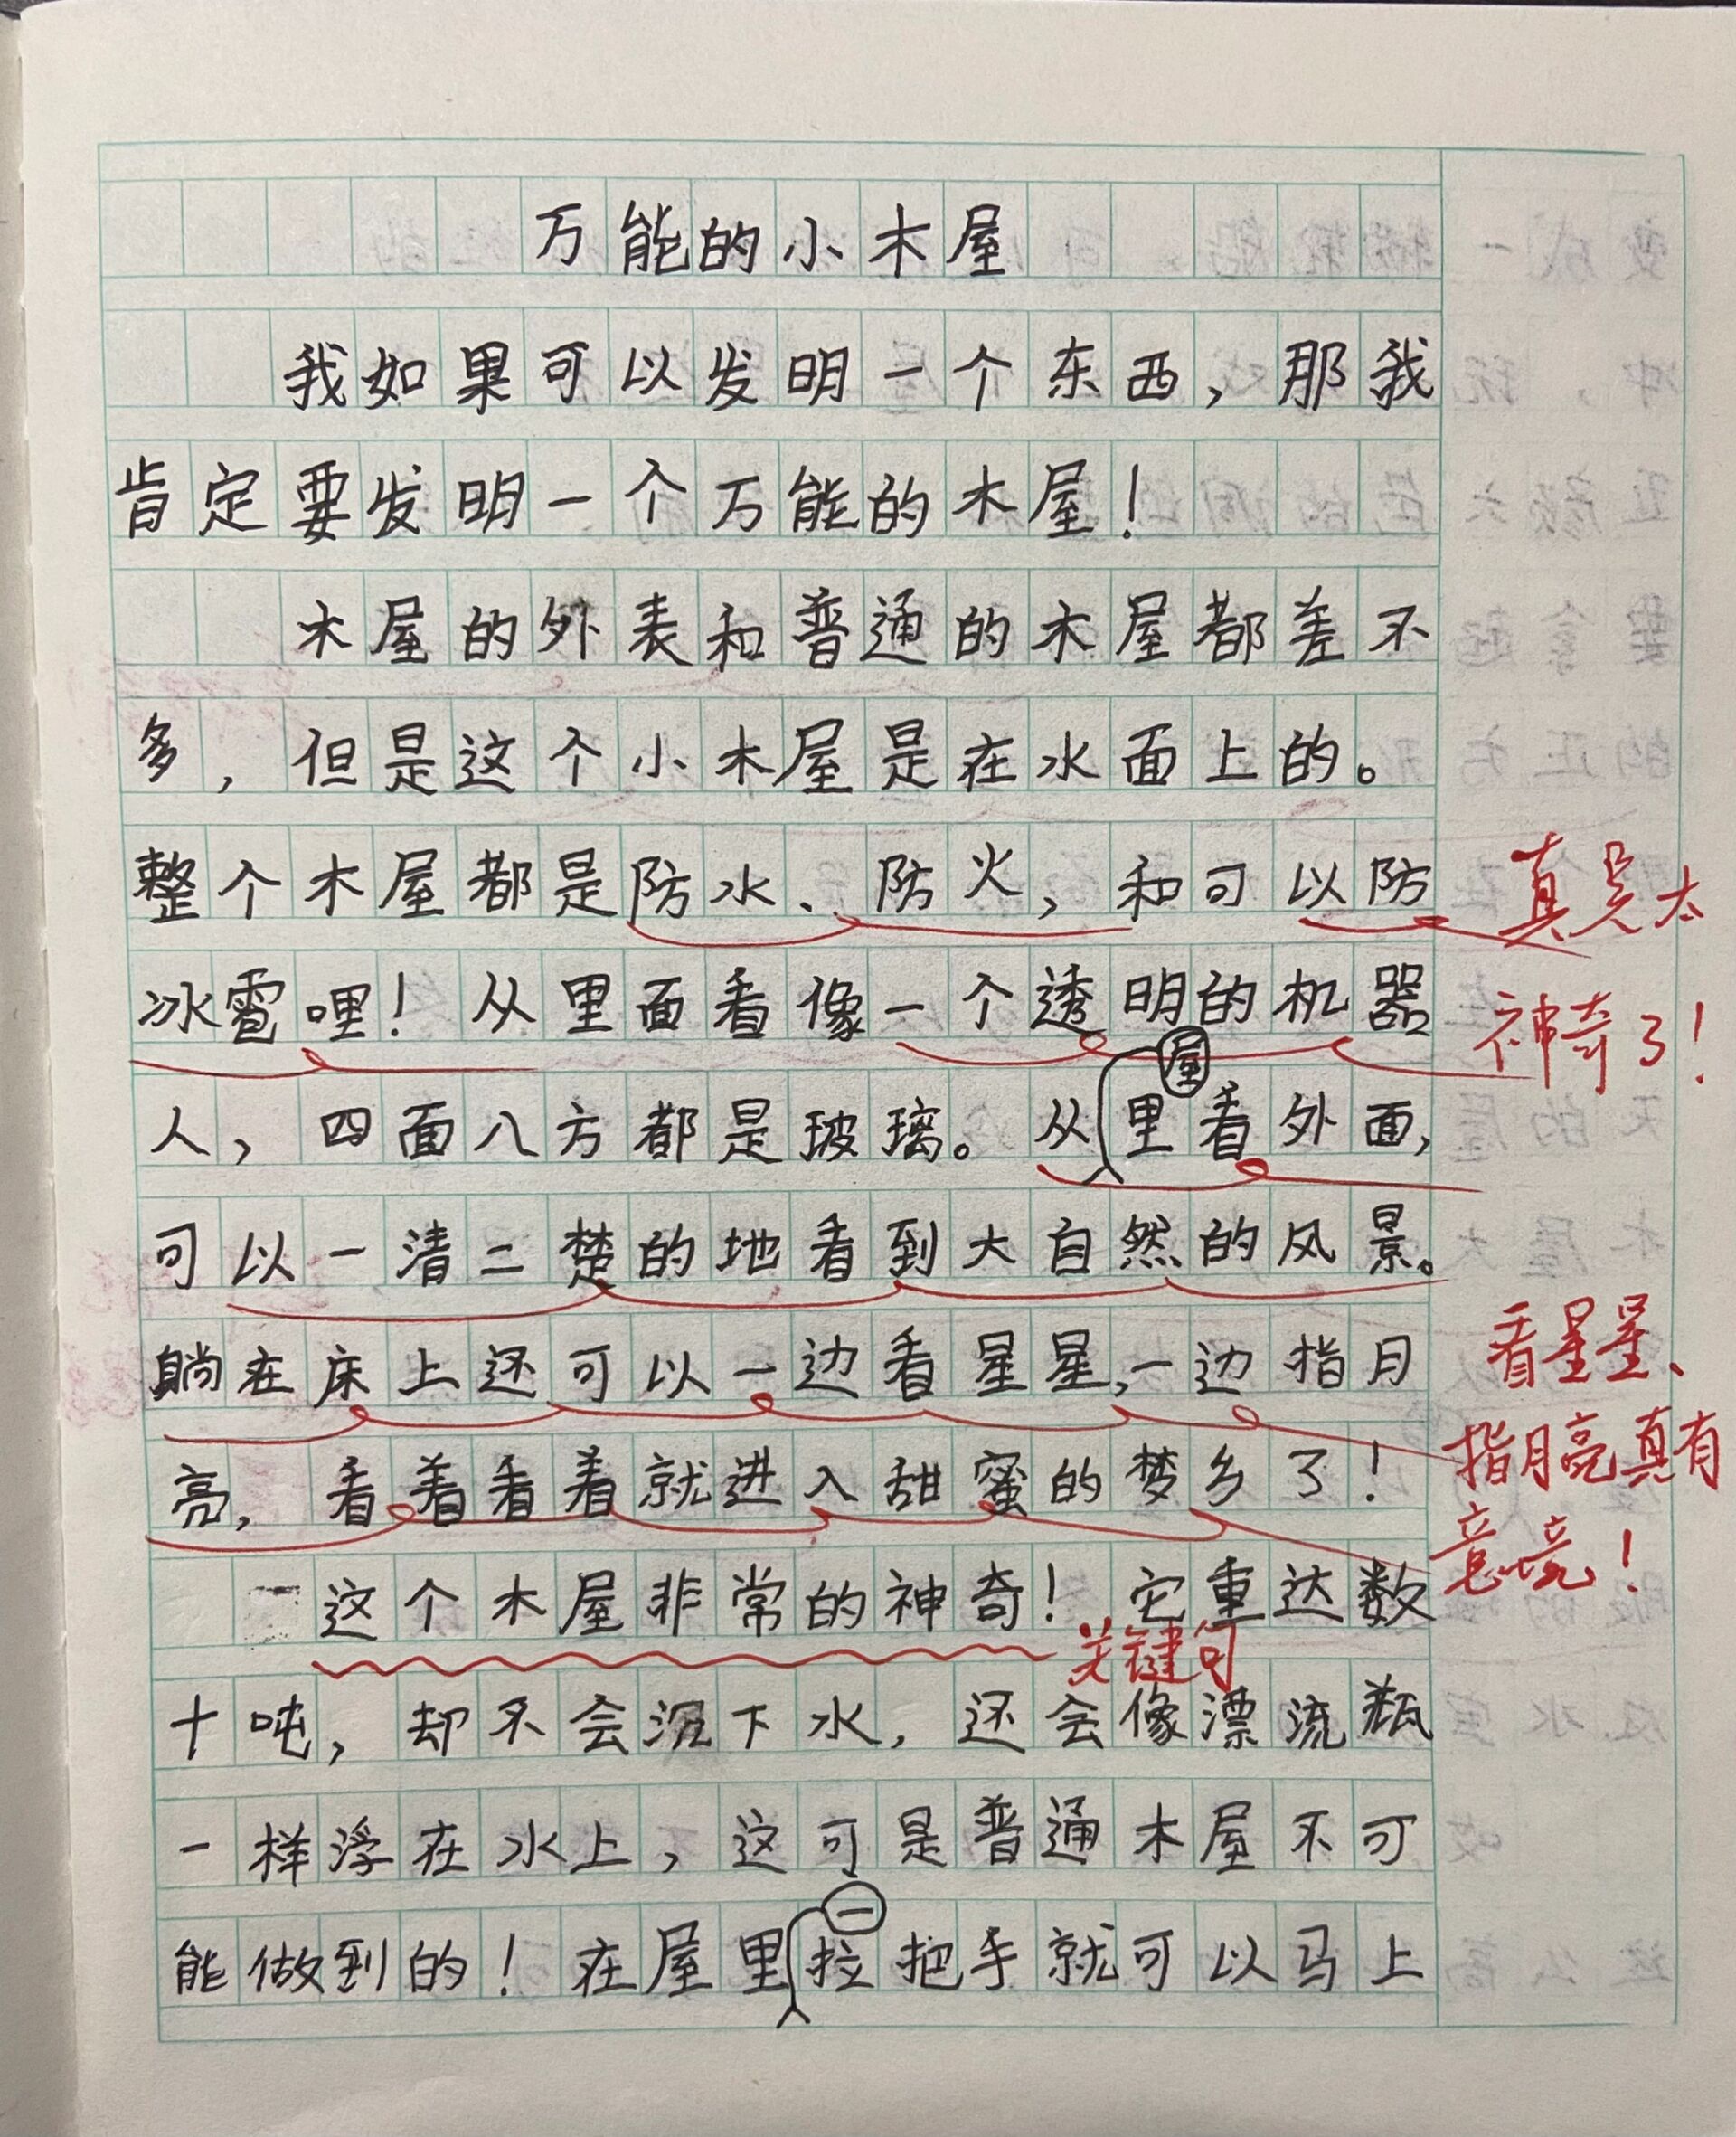 万能的小木屋
我如果可以发明一个东西，那我
肯定要发明一个万能的木屋！
木屋的外表和普通的木屋都差不
多，但是这个小木屋是在水面上的。
整个木屋都是防水、防火，和可以防
真是太
冰雹哩！从里面看像一个透明的机器
神奇了！
人，四面八方都是玻璃。从屋里看外面，
可以一清二楚的地看到大自然的风景。
躺在床上还可以一边看星星，一边指月
看星星、
亮，看着看着就进入甜蜜的梦乡了！
指月亮真有
意境！
这个木屋非常的神奇！它重达数
关键句
十吨，却不会沉下水，还会像漂流瓶
一样浮在水上，这可是普通木屋不可
能做到的！在屋里一拉把手就可以马上